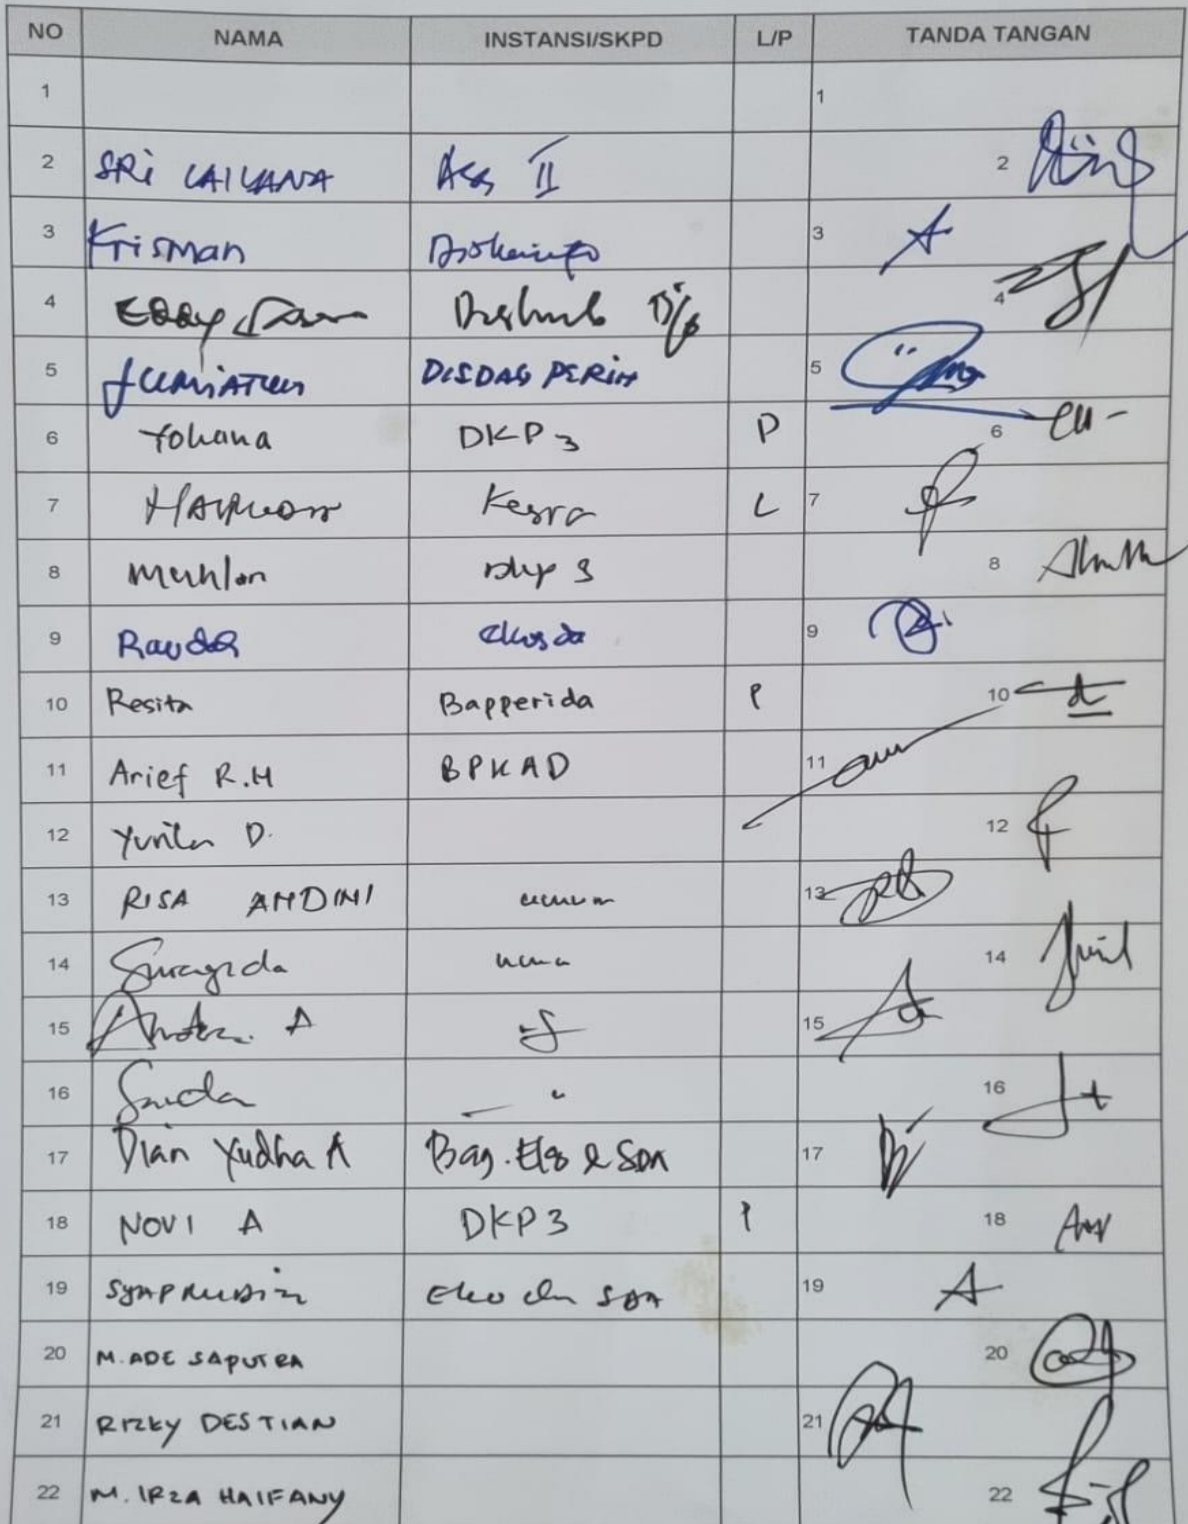 NO NAMA INSTANSI/SKPD L/P TANDA TANGAN
1 1
2 SRI LAILANA Ass II 2
3 Krisman 3
4 Eddy Dishub 4
5 JUMIATUN DISDAG PERIN 5
6 Yohana DKP3 P 6
7 Kesra L 7
8 Muhlan DKP 3 8
9 Raudah ekosda 9
10 Resita Bapperida P 10
11 Arief R.H BPKAD 11
12 Yunita D. 12
13 RISA ANDINI umum 13
14 umum 14
15 A 15
16 16
17 Dian Yudha A Bag. Eko & SDA 17
18 NOVI A DKP3 P 18
19 SYAPRUDIN Eko dan SDA 19
20 M. ADE SAPUTRA 20
21 RIZKY DESTIAN 21
22 M. IRZA HAIFANY 22